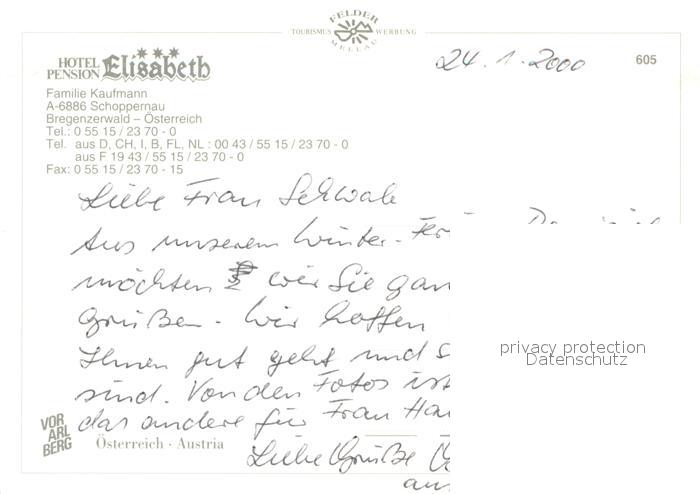 FELDER
TOURISMUS WERBUNG
MELLAU
605
24.1.2000
HOTEL
PENSION Elisabeth
Familie Kaufmann
A-6886 Schoppernau
Bregenzerwald – Österreich
Tel.: 0 55 15 / 23 70 - 0
Tel. aus D, CH, I, B, FL, NL : 00 43 / 55 15 / 23 70 - 0
aus F 19 43 / 55 15 / 23 70 - 0
Fax: 0 55 15 / 23 70 - 15
Liebe Frau Schwab
Aus unserem Winter-
möchten wir Sie
Grüßen. Wir hoffen
Ihnen gut geht und
sind. Von den Fotos ist
das andere für Frau
Liebe Grüße
privacy protection
Datenschutz
VOR
ARL
BERG
Österreich · Austria